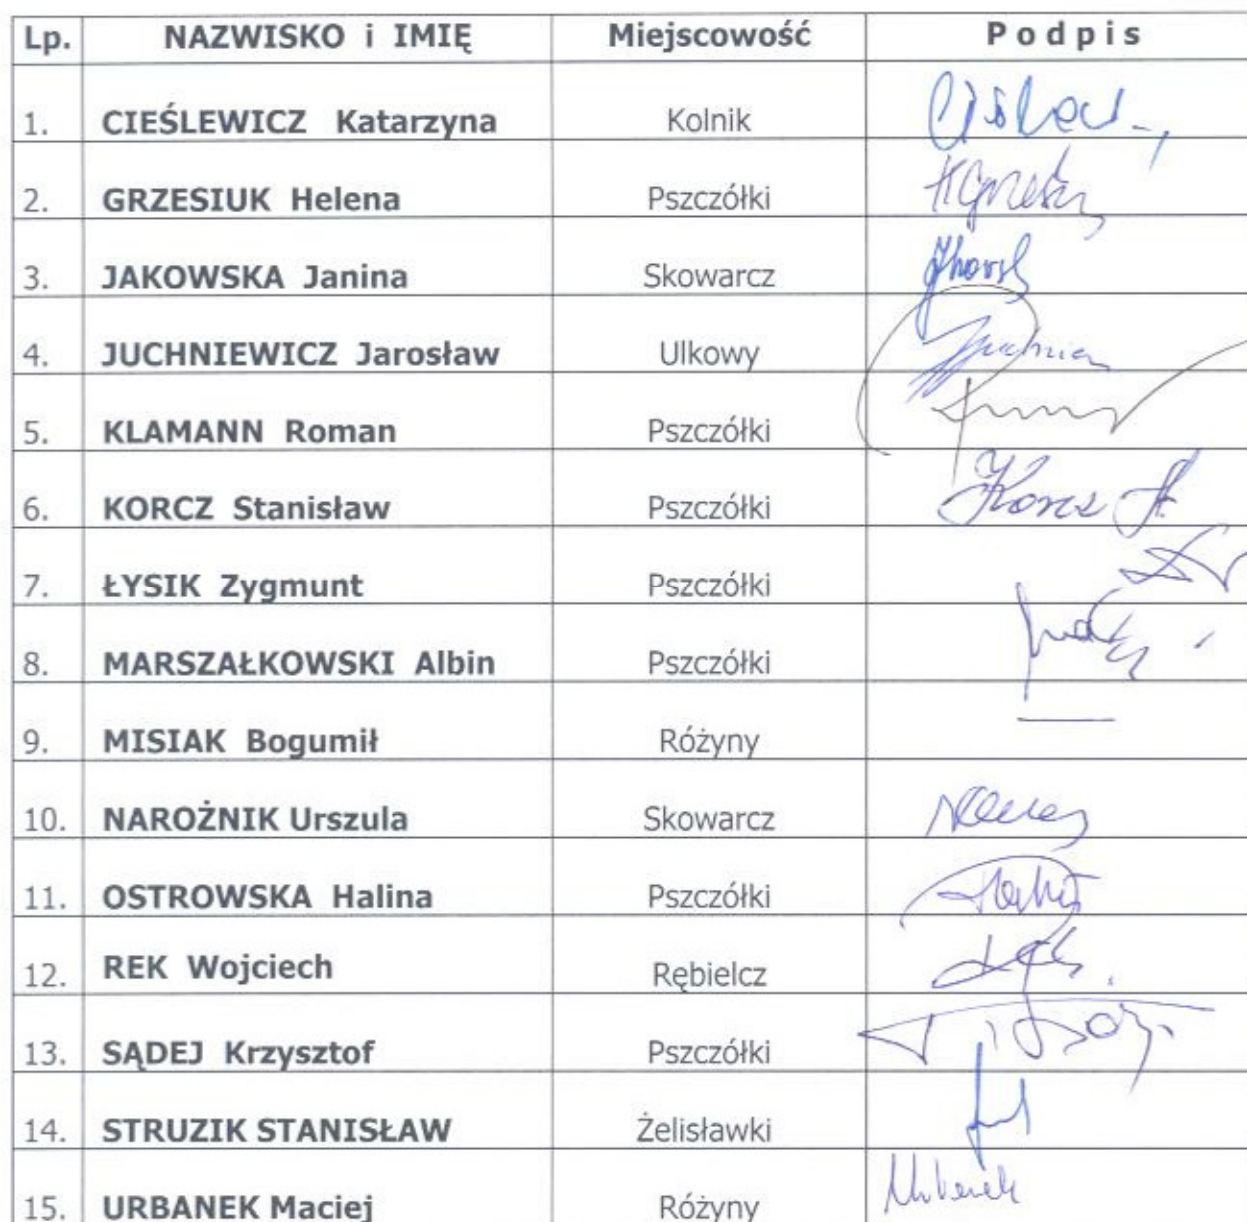 Lp. NAZWISKO i IMIĘ Miejscowość Podpis
1. CIEŚLEWICZ Katarzyna Kolnik
2. GRZESIUK Helena Pszczółki
3. JAKOWSKA Janina Skowarcz
4. JUCHNIEWICZ Jarosław Ulkowy
5. KLAMANN Roman Pszczółki
6. KORCZ Stanisław Pszczółki Korcz St.
7. ŁYSIK Zygmunt Pszczółki
8. MARSZAŁKOWSKI Albin Pszczółki
9. MISIAK Bogumił Różyny
10. NAROŻNIK Urszula Skowarcz
11. OSTROWSKA Halina Pszczółki
12. REK Wojciech Rębielcz
13. SĄDEJ Krzysztof Pszczółki
14. STRUZIK STANISŁAW Żelisławki
15. URBANEK Maciej Różyny MUrbanek